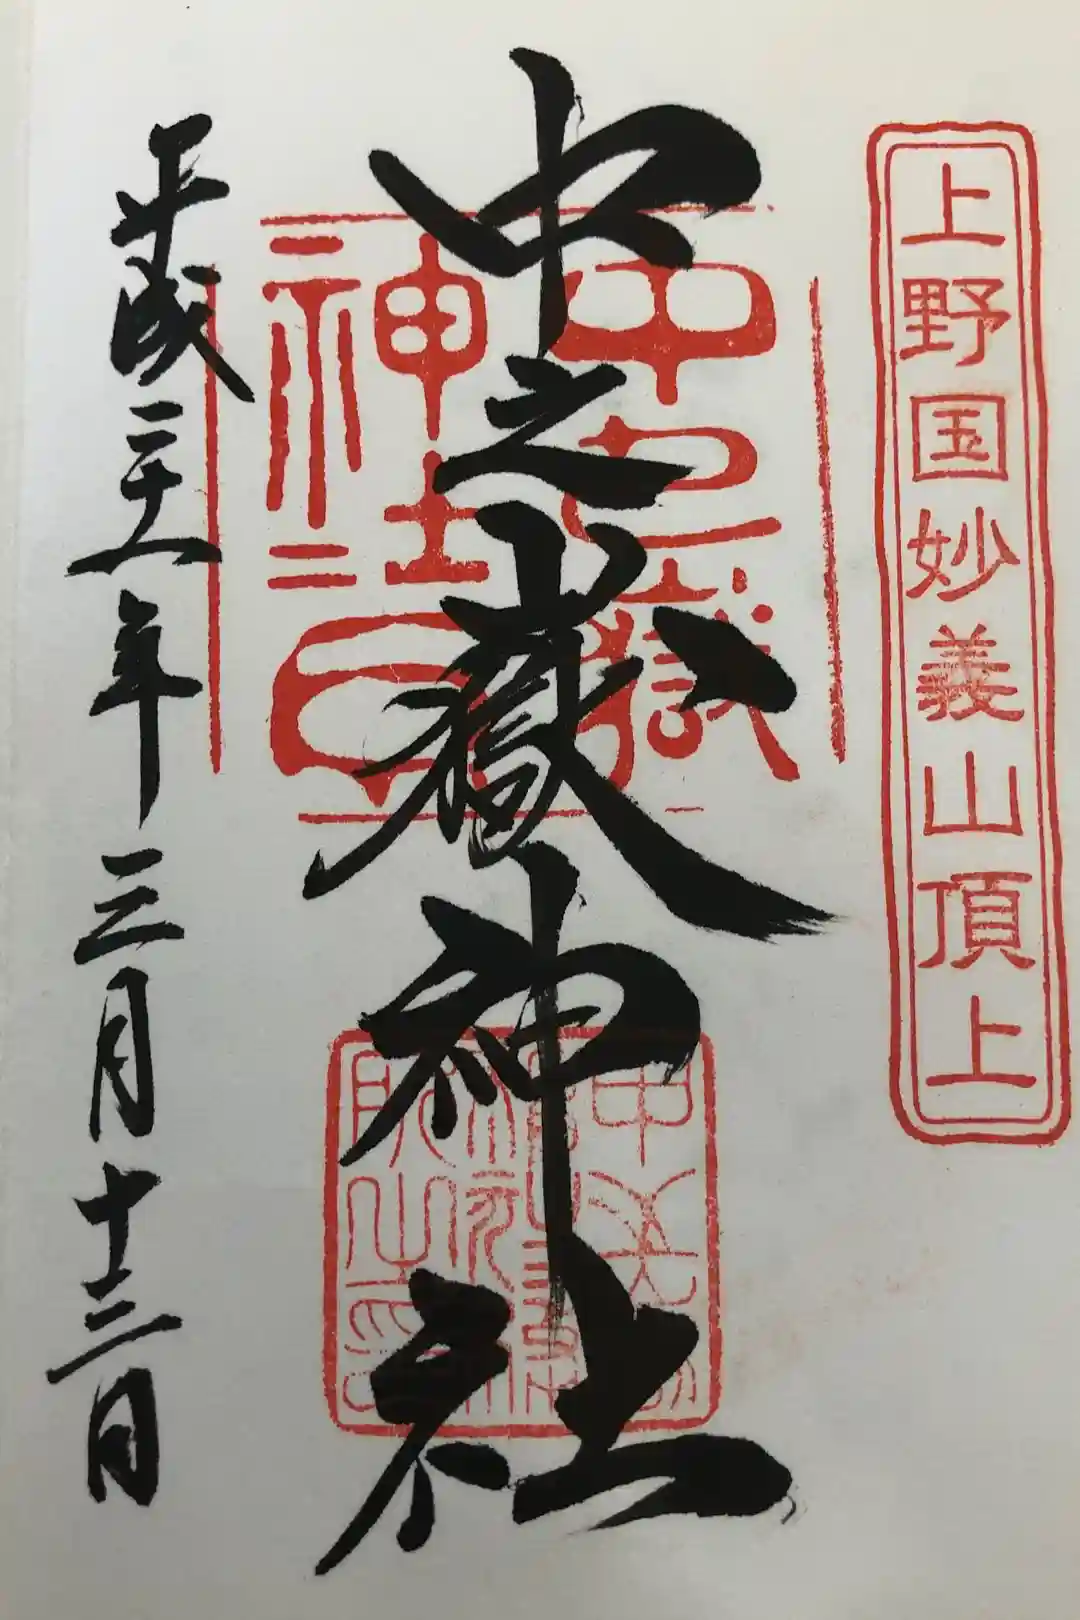 上野国妙義山頂上
中之嶽神社
中之嶽
神社印
平成二十八年三月十三日